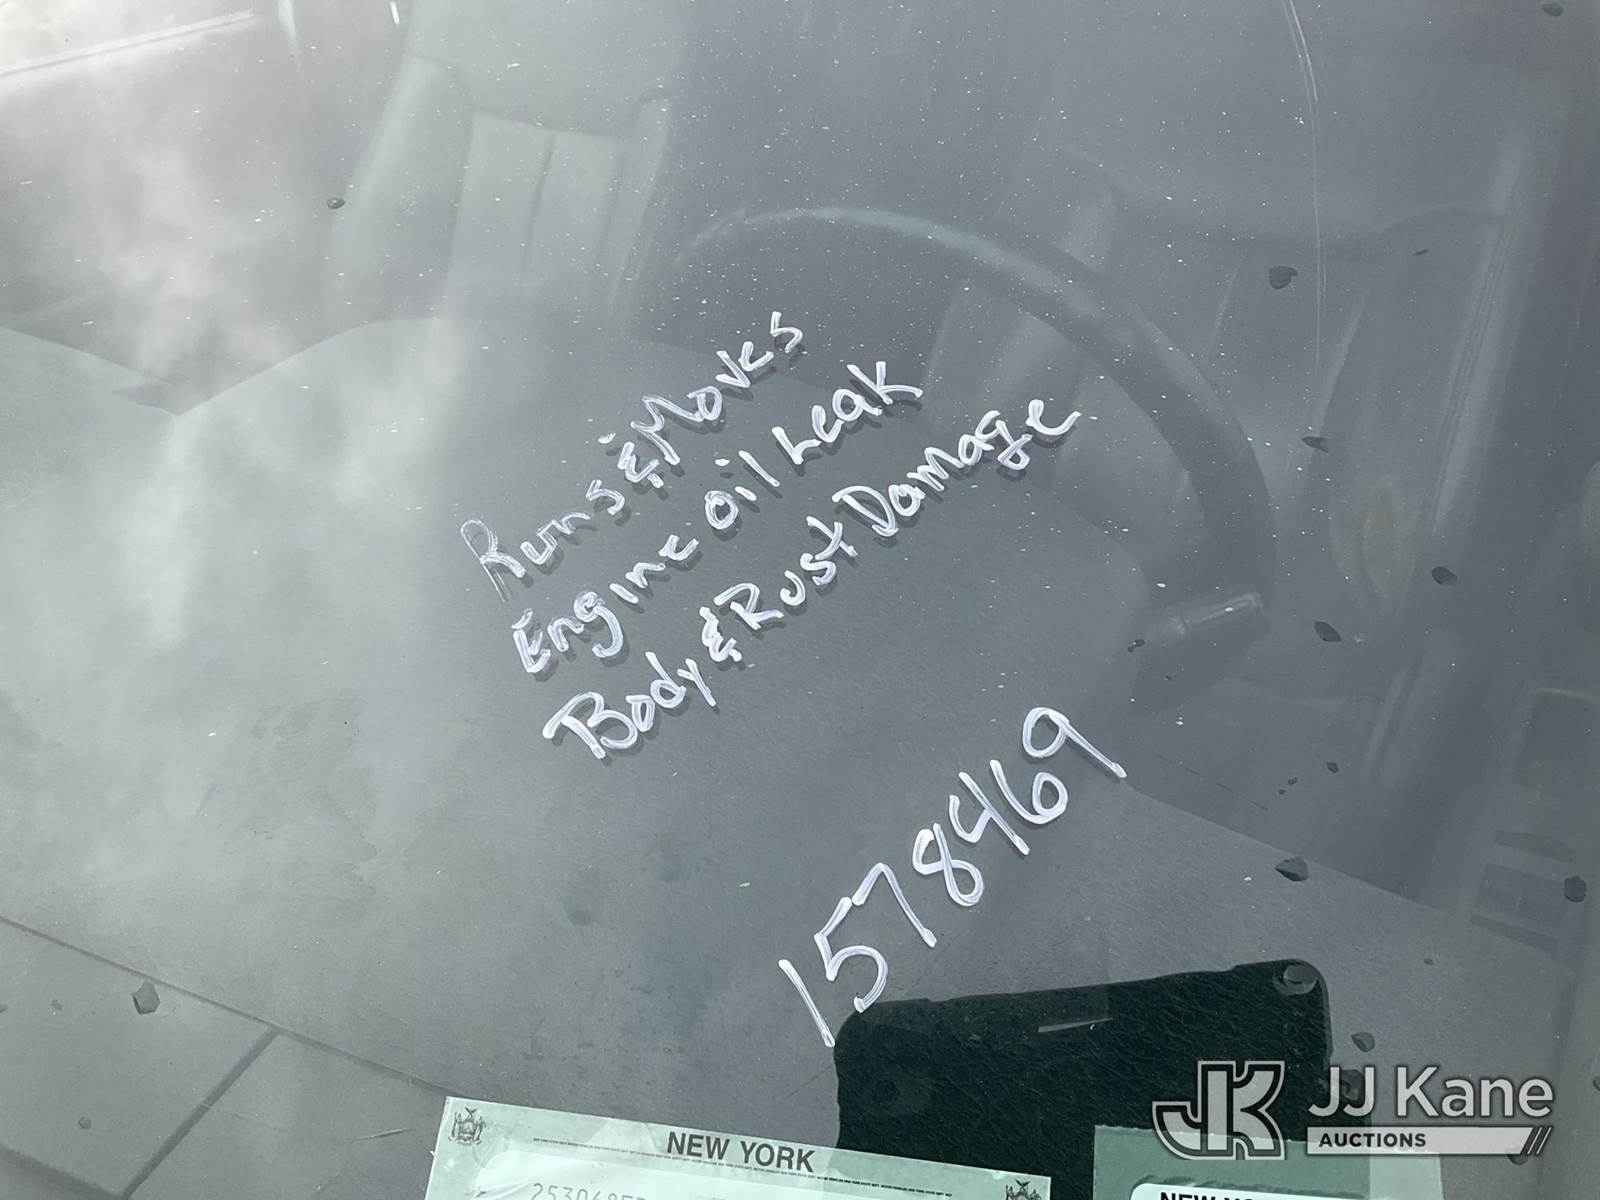 Runs & Moves
Engine Oil Leak
Body & Rust Damage
1578469
NEW YORK
JJ Kane
AUCTIONS